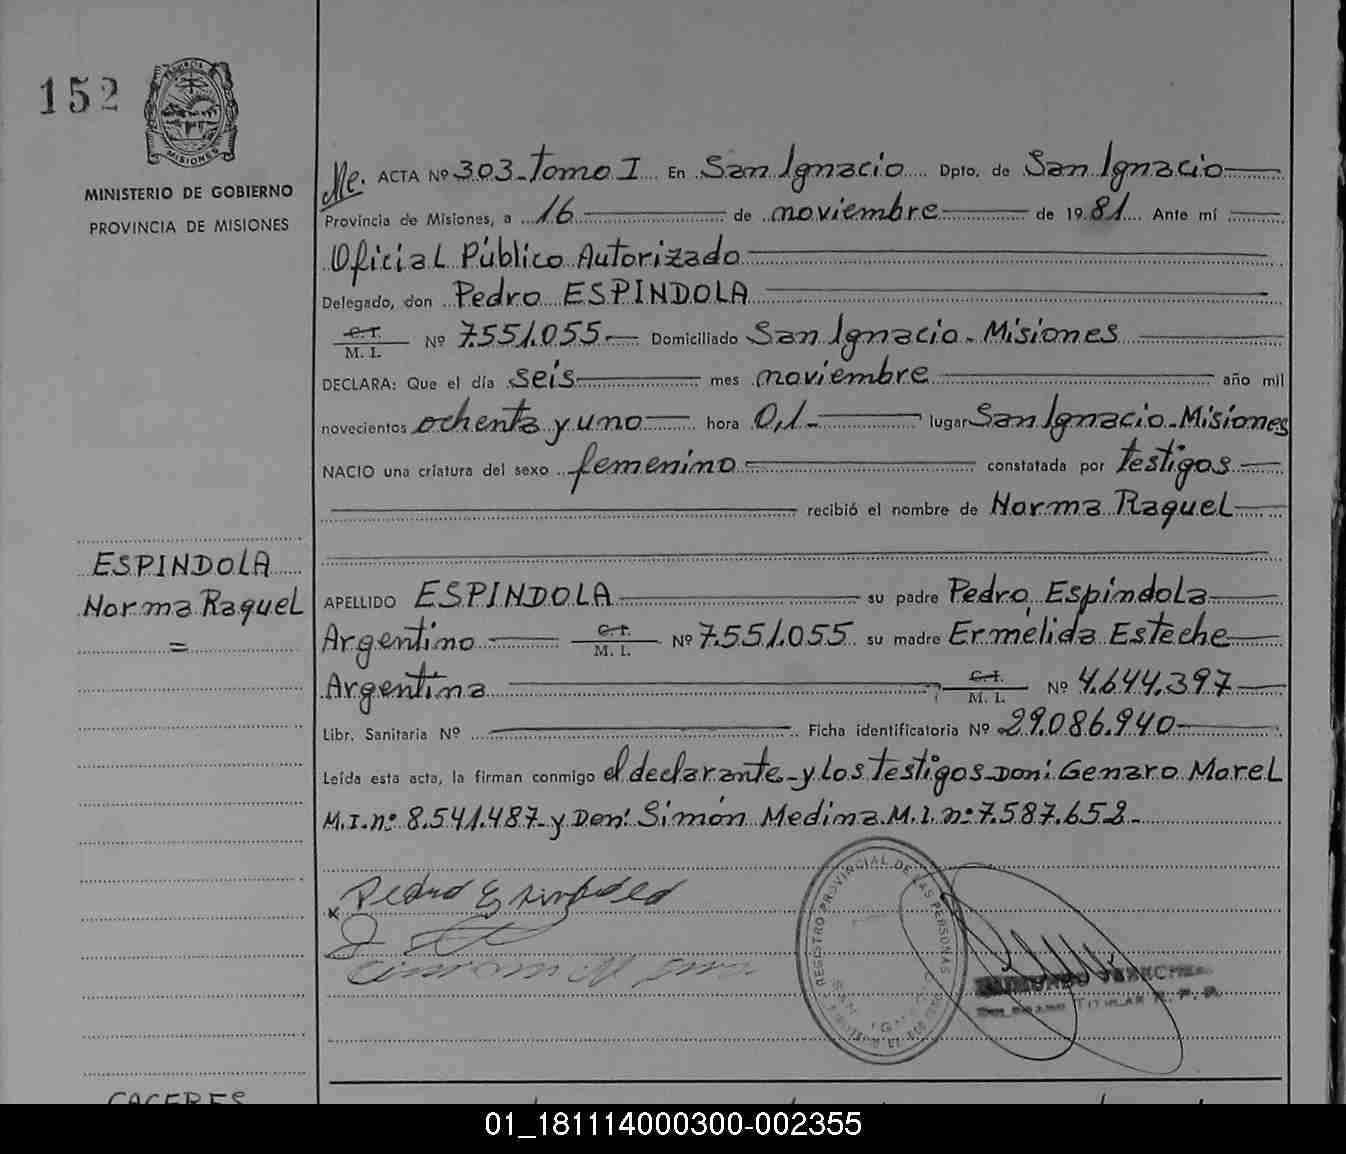 152
PROVINCIA
MISIONES
MINISTERIO DE GOBIERNO
PROVINCIA DE MISIONES
ESPINDOLA
Norma Raquel
=
CACERES
Me. ACTA Nº 303-Tomo I En San Ignacio Dpto. de San Ignacio
Provincia de Misiones, a 16 de noviembre de 1981 Ante mí
Oficial Público Autorizado
Delegado, don Pedro ESPINDOLA
C. I.
M. I. Nº 7.551.055.- Domiciliado San Ignacio - Misiones
DECLARA: Que el día seis mes noviembre año mil
novecientos ochenta y uno hora 0,1.- lugar San Ignacio - Misiones
NACIO una criatura del sexo femenino constatada por testigos
recibió el nombre de Norma Raquel
APELLIDO ESPINDOLA su padre Pedro Espíndola
Argentino C. I. M. I. Nº 7.551.055 su madre Ermélida Esteche
Argentina C. I. M. I. Nº 4.644.397
Libr. Sanitaria Nº Ficha identificatoria Nº 29.086.940
Leída esta acta, la firman conmigo el declarante y los testigos Don: Genaro Morel
M.I.nº 8.541.487- y Don: Simón Medina M.I. nº 7.587.652.-
x Pedro Espindola
REGISTRO PROVINCIAL DE LAS PERSONAS
SAN IGNACIO
TITULAR R. P. P.
01_181114000300-002355